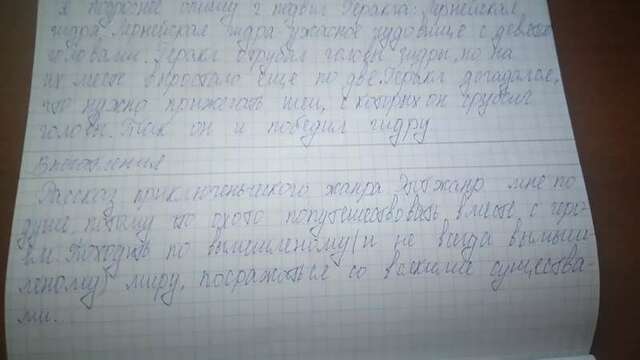 Я подробнее опишу 2 подвиг Геракла: Лернейская
гидра. Лернейская гидра ужасное чудовище с девятью
головами. Геракл отрубал головы гидры, но на
их месте вырастало ещё по две. Геракл догадался,
что нужно прижегать шеи, с которых он срубил
головы. Так он и победил гидру
Впечатления
Рассказ приключенческого жанра. Этот жанр мне по
душе, потому что охото попутешествовать вместе с геро-
ем. Походить по вымышленому(и не всегда вымыш-
леному) миру, посражаться со всякими существа-
ми.